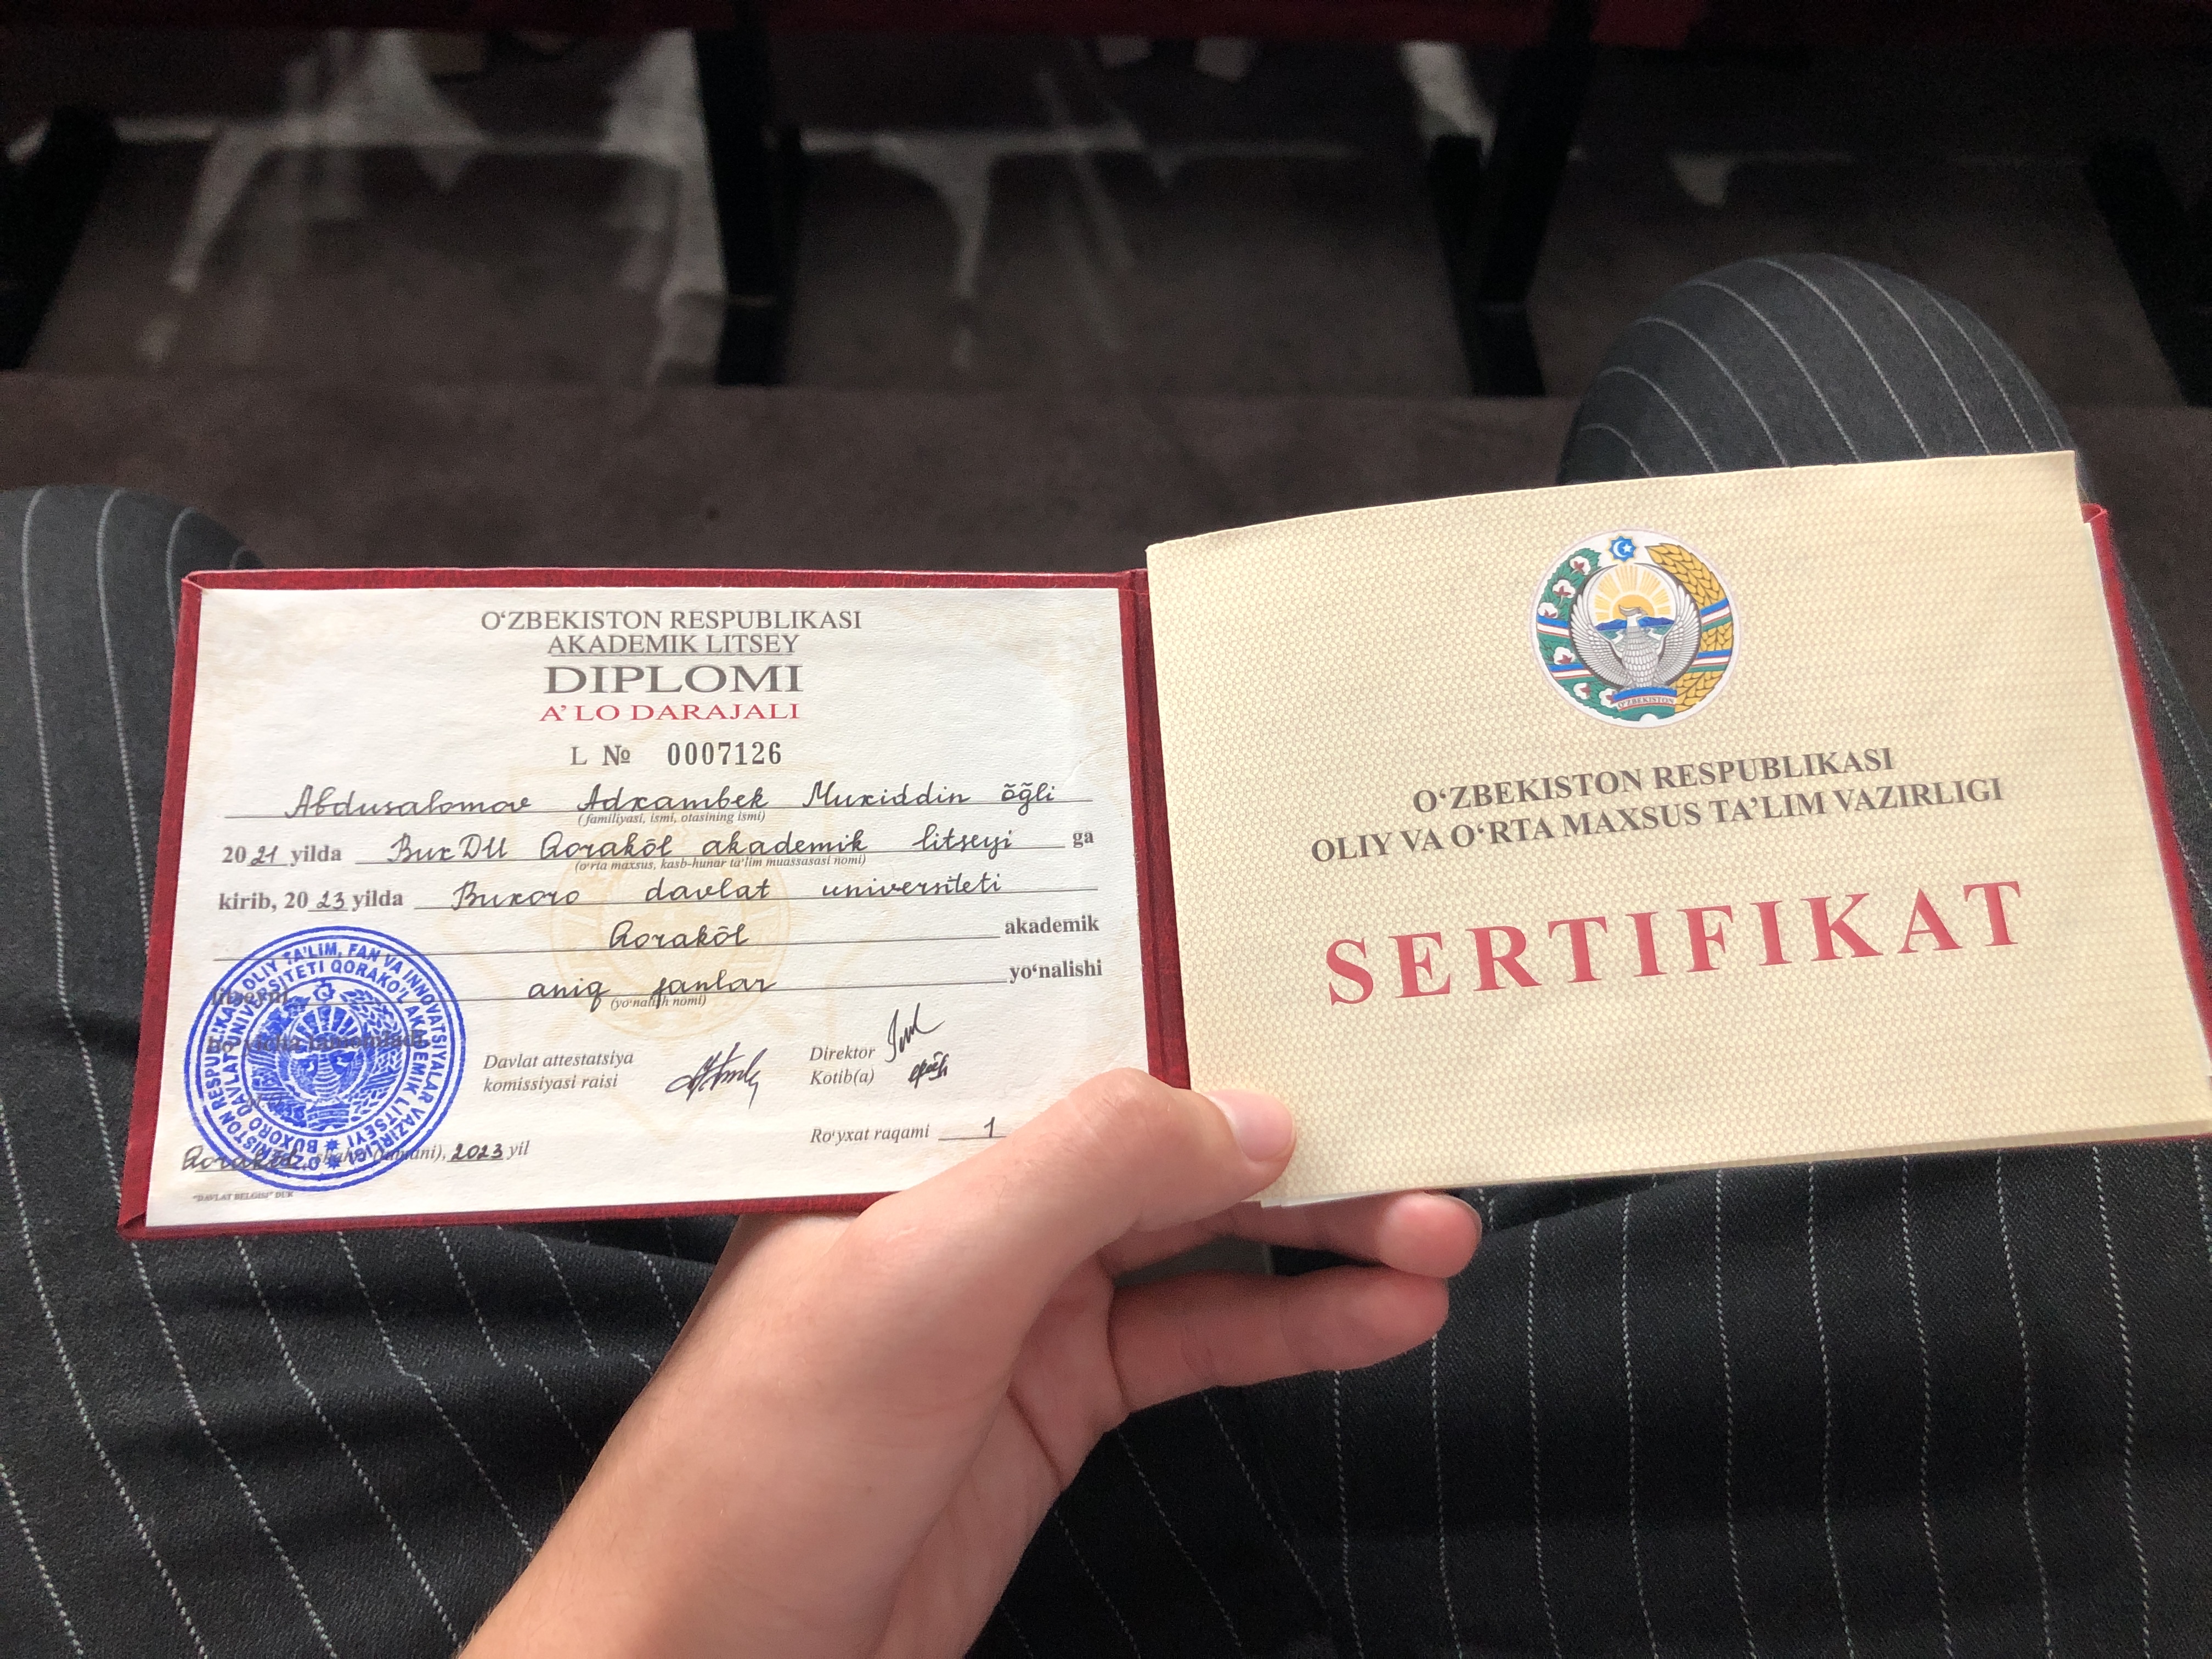 O‘ZBEKISTON RESPUBLIKASI
AKADEMIK LITSEY
DIPLOMI
A’LO DARAJALI
L № 0007126
Abdusalomov Adxambek Muxiddin õğli
(familiyasi, ismi, otasining ismi)
2021 yilda BuxDU Qorakõl akademik litseyi ga
(o‘rta maxsus, kasb-hunar ta’lim muassasasi nomi)
kirib, 2023 yilda Buxoro davlat universiteti
Qorakõl akademik
litseyni aniq fanlar yo‘nalishi
(yo‘nalish nomi)
bo‘yicha tamomladi
Davlat attestatsiya
komissiyasi raisi
Direktor
Kotib(a)
Ro‘yxat raqami 1
Qorakõl 2023 yil
"DAVLAT BELGISI" DUK
O‘ZBEKISTON RESPUBLIKASI OLIY TA’LIM, FAN VA INNOVATSIYALAR VAZIRLIGI
BUXORO DAVLAT UNIVERSITETI QORAKO‘L AKADEMIK LITSEYI
O‘ZBEKISTON
O‘ZBEKISTON RESPUBLIKASI
OLIY VA O‘RTA MAXSUS TA’LIM VAZIRLIGI
SERTIFIKAT